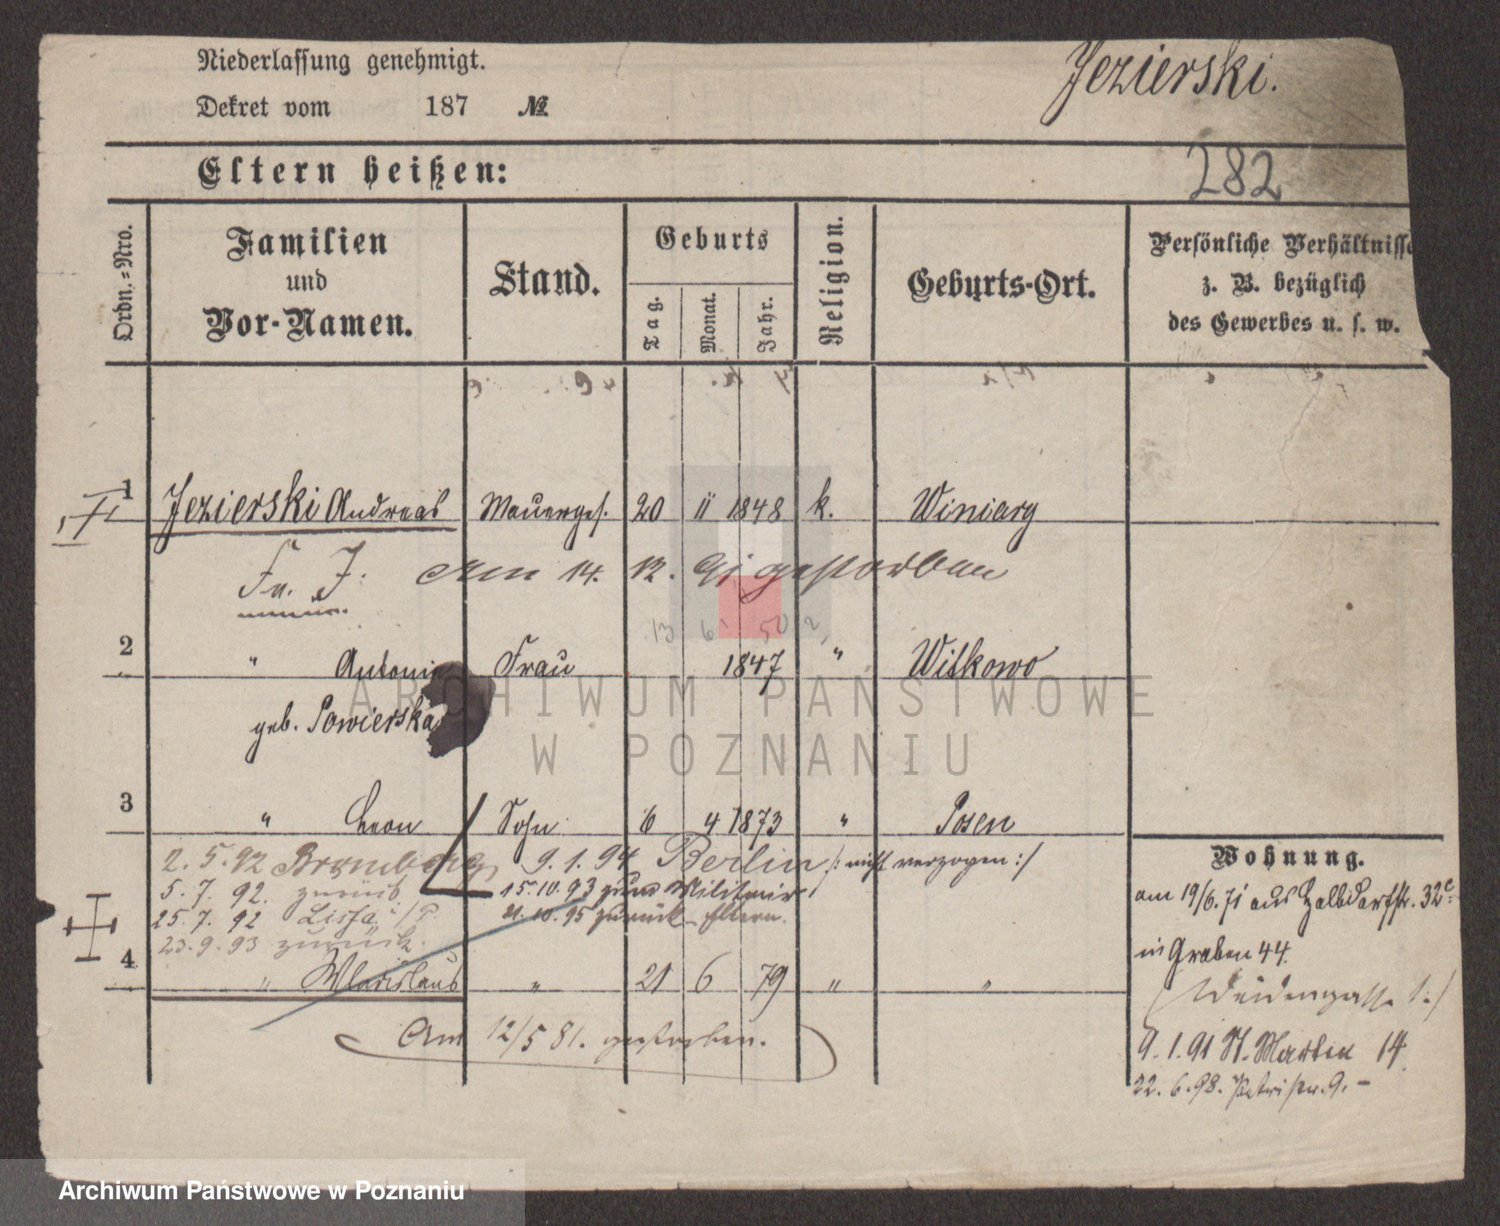 Niederlassung genehmigt.
Jezierski.
Dekret vom 187 №
282
Eltern heißen:
Ordn.=Nro.
Familien und Vor-Namen.
Stand.
Geburts
Tag. Monat. Jahr.
Religion.
Geburts-Ort.
Persönliche Verhältnisse
z. B. bezüglich
des Gewerbes u. s. w.
1 Jezierski Andreas Mauerges. 20 11 1848 k. Winiary
Fr. J. Am 14. 12. 91 gestorben
13 6 50
2 " Antonie Frau 1847 " Witkowo
geb. Powierska
3 " Leon Sohn 6 4 1873 " Posen
2. 5. 92 Bromberg 9. 1. 94 Berlin /: nicht verzogen :/
5. 7. 92. zurück 15.10.93 zum Militair
25. 7. 92 Lissa i/P. 21.10.95 zurück Eltern.
23. 9. 93 zurück.
4 " Wladislaus " 21 6 79 " "
Am 12/5 81. gestorben.
Wohnung.
am 19/6. 71 aus Halbdorfstr. 32c
in Graben 44.
Weidengasse 1.
9. 1. 91 St. Martin 14.
22. 6. 98. Petristr. 9. –
ARCHIWUM PAŃSTWOWE
W POZNANIU
Archiwum Państwowe w Poznaniu